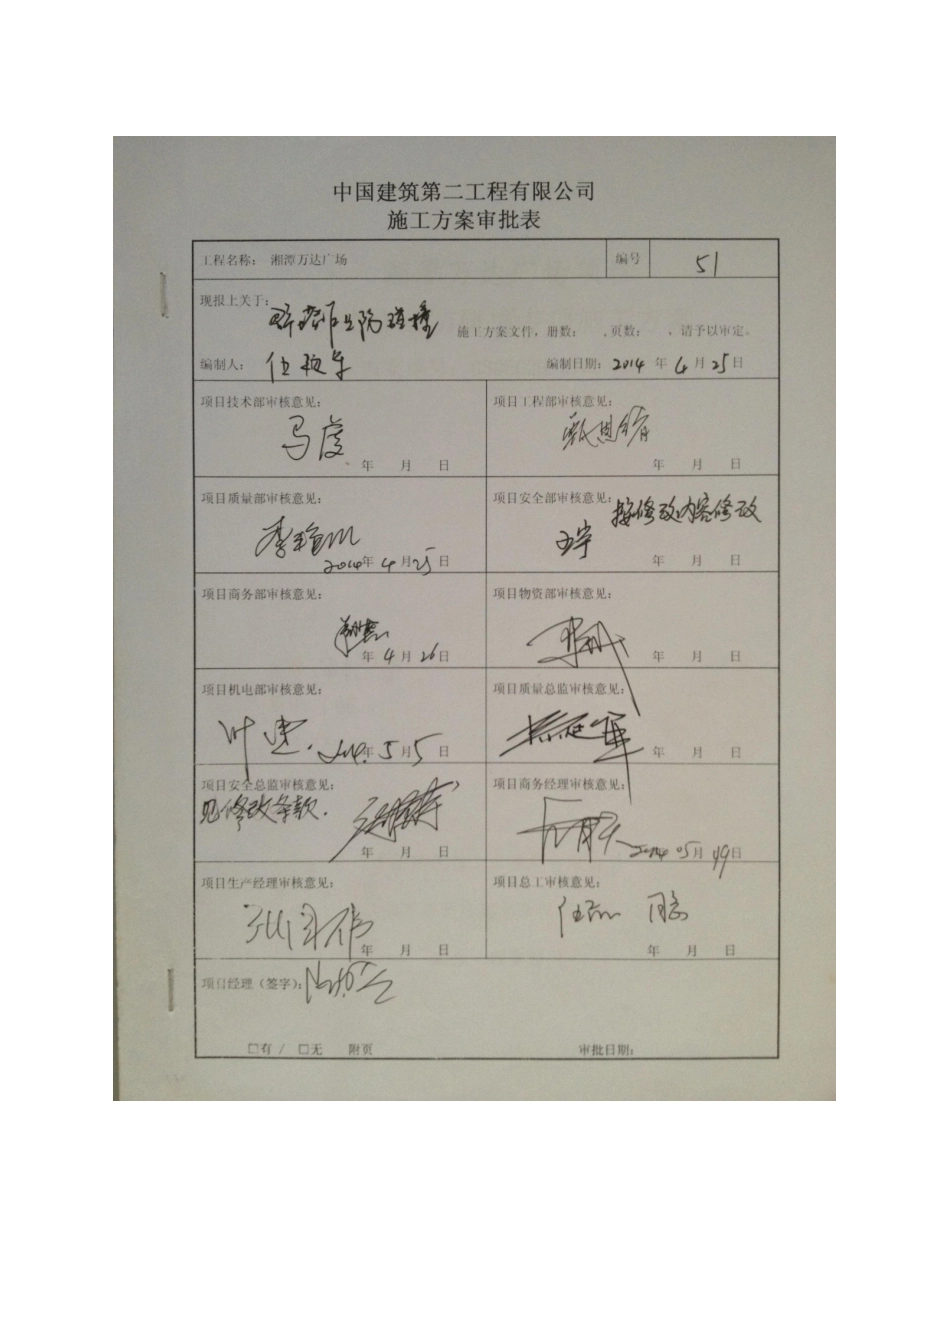 中国建筑第二工程有限公司
施工方案审批表
工程名称： 湘潭万达广场 编号 51
现报上关于： 防碰撞 施工方案文件，册数： ，页数： 、请予以审定。
编制人： 编制日期：2014 年 4 月 25 日
项目技术部审核意见： 项目工程部审核意见：
马俊
年 月 日 年 月 日
项目质量部审核意见： 项目安全部审核意见：按修改内容修改
2014年 4 月25日 年 月 日
项目商务部审核意见： 项目物资部审核意见：
年 4 月 26 日 年 月 日
项目机电部审核意见： 项目质量总监审核意见：
叶建 2014年 5 月 5 日 年 月 日
项目安全总监审核意见： 项目商务经理审核意见：
见修改条款.
年 月 日 2014 05月 19日
项目生产经理审核意见： 项目总工审核意见：
年 月 日 年 月 日
项目经理（签字）：
□有 / □无 附页 审批日期：